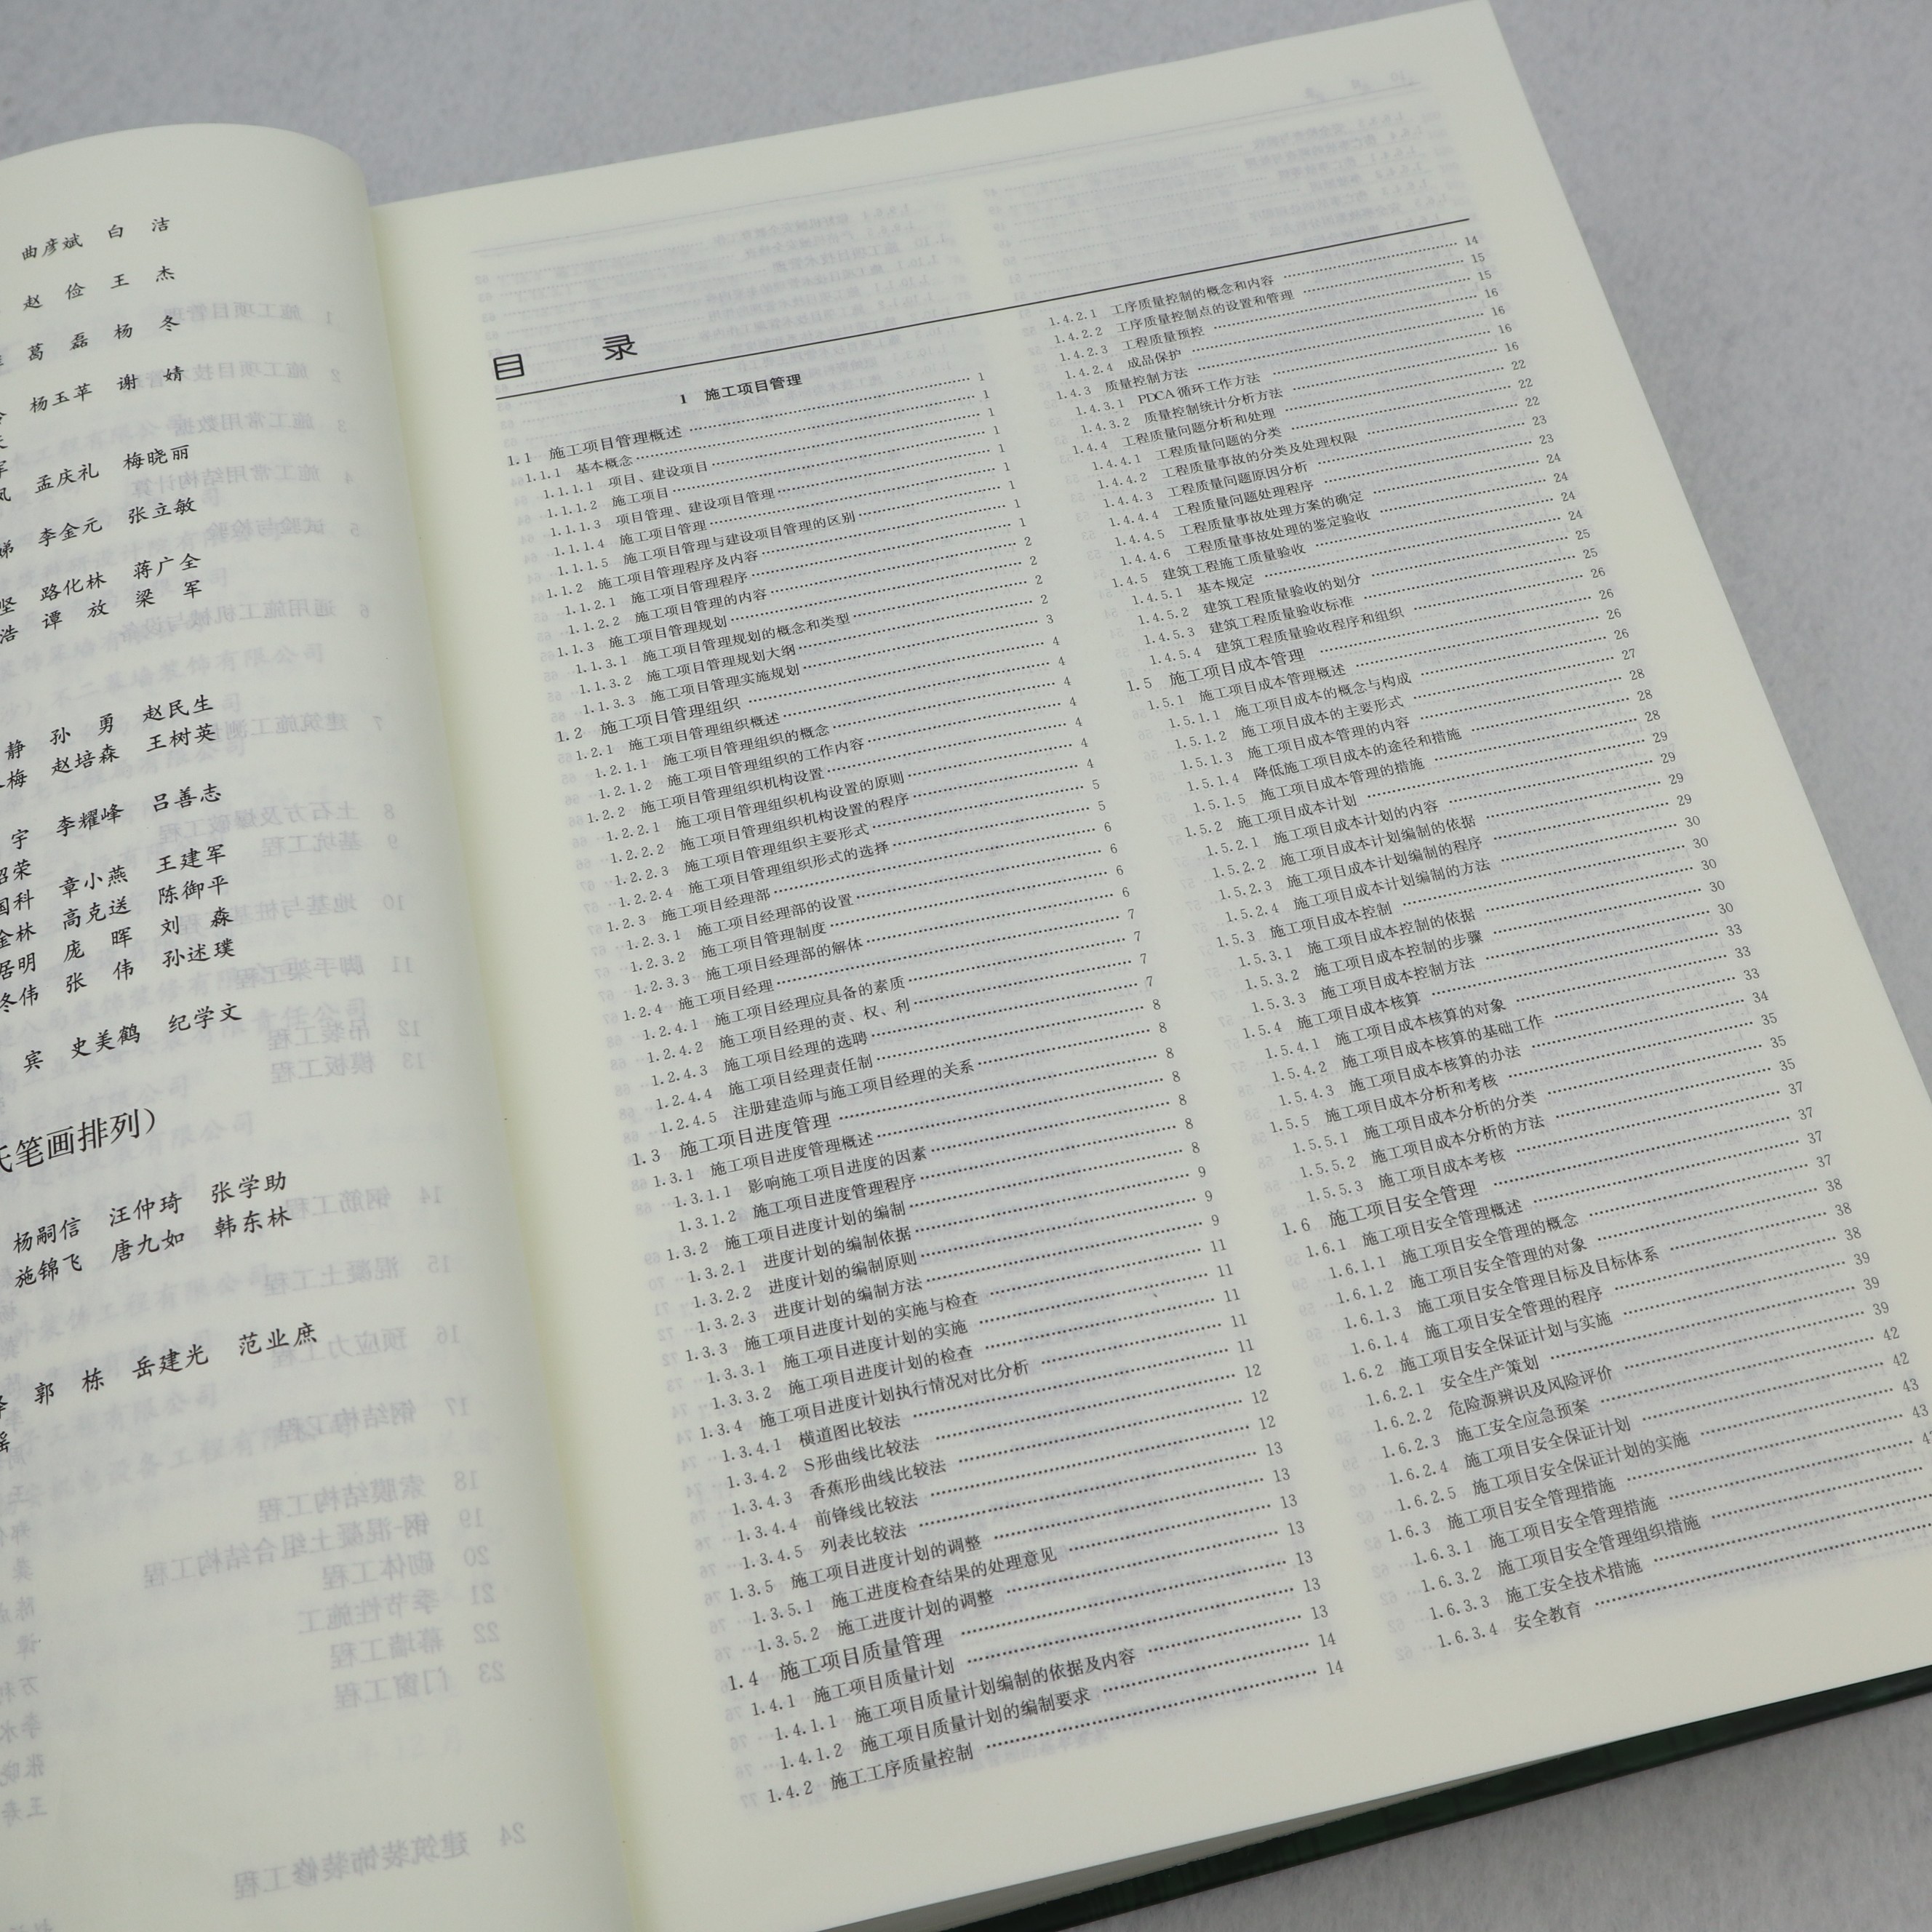 曲彦斌 白 洁
赵 俭 王 杰
葛 磊 杨 冬
杨玉苹 谢 婧
孟庆礼 梅晓丽
李金元 张立敏
路化林 蒋广全
浩 谭 放 梁 军
静 孙 勇 赵民生
梅 赵培森 王树英
宇 李耀峰 吕善志
国科 章小燕 王建军
金林 高克送 陈御平
居明 庞 晖 刘 森
冬伟 张 伟 孙述璞
宾 史美鹤 纪学文
氏笔画排列）
杨嗣信 汪仲琦 张学助
施锦飞 唐九如 韩东林
郭 栋 岳建光 范业庶
目 录
1 施工项目管理
1.1 施工项目管理概述 1
1.1.1 基本概念 1
1.1.1.1 项目、建设项目 1
1.1.1.2 施工项目 1
1.1.1.3 项目管理、建设项目管理 1
1.1.1.4 施工项目管理 1
1.1.1.5 施工项目管理与建设项目管理的区别 1
1.1.2 施工项目管理程序及内容 1
1.1.2.1 施工项目管理程序 1
1.1.2.2 施工项目管理的内容 2
1.1.3 施工项目管理规划 2
1.1.3.1 施工项目管理规划的概念和类型 2
1.1.3.2 施工项目管理规划大纲 2
1.1.3.3 施工项目管理实施规划 3
1.2 施工项目管理组织 4
1.2.1 施工项目管理组织概述 4
1.2.1.1 施工项目管理组织的概念 4
1.2.1.2 施工项目管理组织的工作内容 4
1.2.2 施工项目管理组织机构设置 4
1.2.2.1 施工项目管理组织机构设置的原则 4
1.2.2.2 施工项目管理组织机构设置的程序 4
1.2.2.3 施工项目管理组织主要形式 5
1.2.2.4 施工项目管理组织形式的选择 5
1.2.3 施工项目经理部 6
1.2.3.1 施工项目经理部的设置 6
1.2.3.2 施工项目管理制度 6
1.2.3.3 施工项目经理部的解体 6
1.2.4 施工项目经理 7
1.2.4.1 施工项目经理应具备的素质 7
1.2.4.2 施工项目经理的责、权、利 7
1.2.4.3 施工项目经理的选聘 7
1.2.4.4 施工项目经理责任制 8
1.2.4.5 注册建造师与施工项目经理的关系 8
1.3 施工项目进度管理 8
1.3.1 施工项目进度管理概述 8
1.3.1.1 影响施工项目进度的因素 8
1.3.1.2 施工项目进度管理程序 8
1.3.2 施工项目进度计划的编制 8
1.3.2.1 进度计划的编制依据 9
1.3.2.2 进度计划的编制原则 9
1.3.2.3 进度计划的编制方法 9
1.3.3 施工项目进度计划的实施与检查 11
1.3.3.1 施工项目进度计划的实施 11
1.3.3.2 施工项目进度计划的检查 11
1.3.4 施工项目进度计划执行情况对比分析 11
1.3.4.1 横道图比较法 11
1.3.4.2 S形曲线比较法 12
1.3.4.3 香蕉形曲线比较法 12
1.3.4.4 前锋线比较法 12
1.3.4.5 列表比较法 13
1.3.5 施工项目进度计划的调整 13
1.3.5.1 施工进度检查结果的处理意见 13
1.3.5.2 施工进度计划的调整 13
1.4 施工项目质量管理 13
1.4.1 施工项目质量计划 13
1.4.1.1 施工项目质量计划编制的依据及内容 13
1.4.1.2 施工项目质量计划的编制要求 14
1.4.2 施工工序质量控制 14
1.4.2.1 工序质量控制的概念和内容 14
1.4.2.2 工序质量控制点的设置和管理 15
1.4.2.3 工程质量预控 15
1.4.2.4 成品保护 16
1.4.3 质量控制方法 16
1.4.3.1 PDCA循环工作方法 16
1.4.3.2 质量控制统计分析方法 16
1.4.4 工程质量问题分析和处理 22
1.4.4.1 工程质量问题的分类 22
1.4.4.2 工程质量事故的分类及处理权限 22
1.4.4.3 工程质量问题原因分析 23
1.4.4.4 工程质量问题处理程序 23
1.4.4.5 工程质量事故处理方案的确定 24
1.4.4.6 工程质量事故处理的鉴定验收 24
1.4.5 建筑工程施工质量验收 24
1.4.5.1 基本规定 24
1.4.5.2 建筑工程质量验收的划分 25
1.4.5.3 建筑工程质量验收标准 25
1.4.5.4 建筑工程质量验收程序和组织 26
1.5 施工项目成本管理 26
1.5.1 施工项目成本管理概述 26
1.5.1.1 施工项目成本的概念与构成 26
1.5.1.2 施工项目成本的主要形式 27
1.5.1.3 施工项目成本管理的内容 28
1.5.1.4 降低施工项目成本的途径和措施 28
1.5.1.5 施工项目成本管理的措施 28
1.5.2 施工项目成本计划 29
1.5.2.1 施工项目成本计划的内容 29
1.5.2.2 施工项目成本计划编制的依据 29
1.5.2.3 施工项目成本计划编制的程序 29
1.5.2.4 施工项目成本计划编制的方法 30
1.5.3 施工项目成本控制 30
1.5.3.1 施工项目成本控制的依据 30
1.5.3.2 施工项目成本控制的步骤 30
1.5.3.3 施工项目成本控制方法 30
1.5.4 施工项目成本核算 33
1.5.4.1 施工项目成本核算的对象 33
1.5.4.2 施工项目成本核算的基础工作 33
1.5.4.3 施工项目成本核算的办法 34
1.5.5 施工项目成本分析和考核 35
1.5.5.1 施工项目成本分析的分类 35
1.5.5.2 施工项目成本分析的方法 35
1.5.5.3 施工项目成本考核 37
1.6 施工项目安全管理 37
1.6.1 施工项目安全管理概述 37
1.6.1.1 施工项目安全管理的概念 37
1.6.1.2 施工项目安全管理的对象 38
1.6.1.3 施工项目安全管理目标及目标体系 38
1.6.1.4 施工项目安全管理的程序 38
1.6.2 施工项目安全保证计划与实施 39
1.6.2.1 安全生产策划 39
1.6.2.2 危险源辨识及风险评价 39
1.6.2.3 施工安全应急预案 42
1.6.2.4 施工项目安全保证计划 42
1.6.2.5 施工项目安全保证计划的实施 43
1.6.3 施工项目安全管理措施 43
1.6.3.1 施工项目安全管理措施
1.6.3.2 施工项目安全管理组织措施
1.6.3.3 施工安全技术措施
1.6.3.4 安全教育